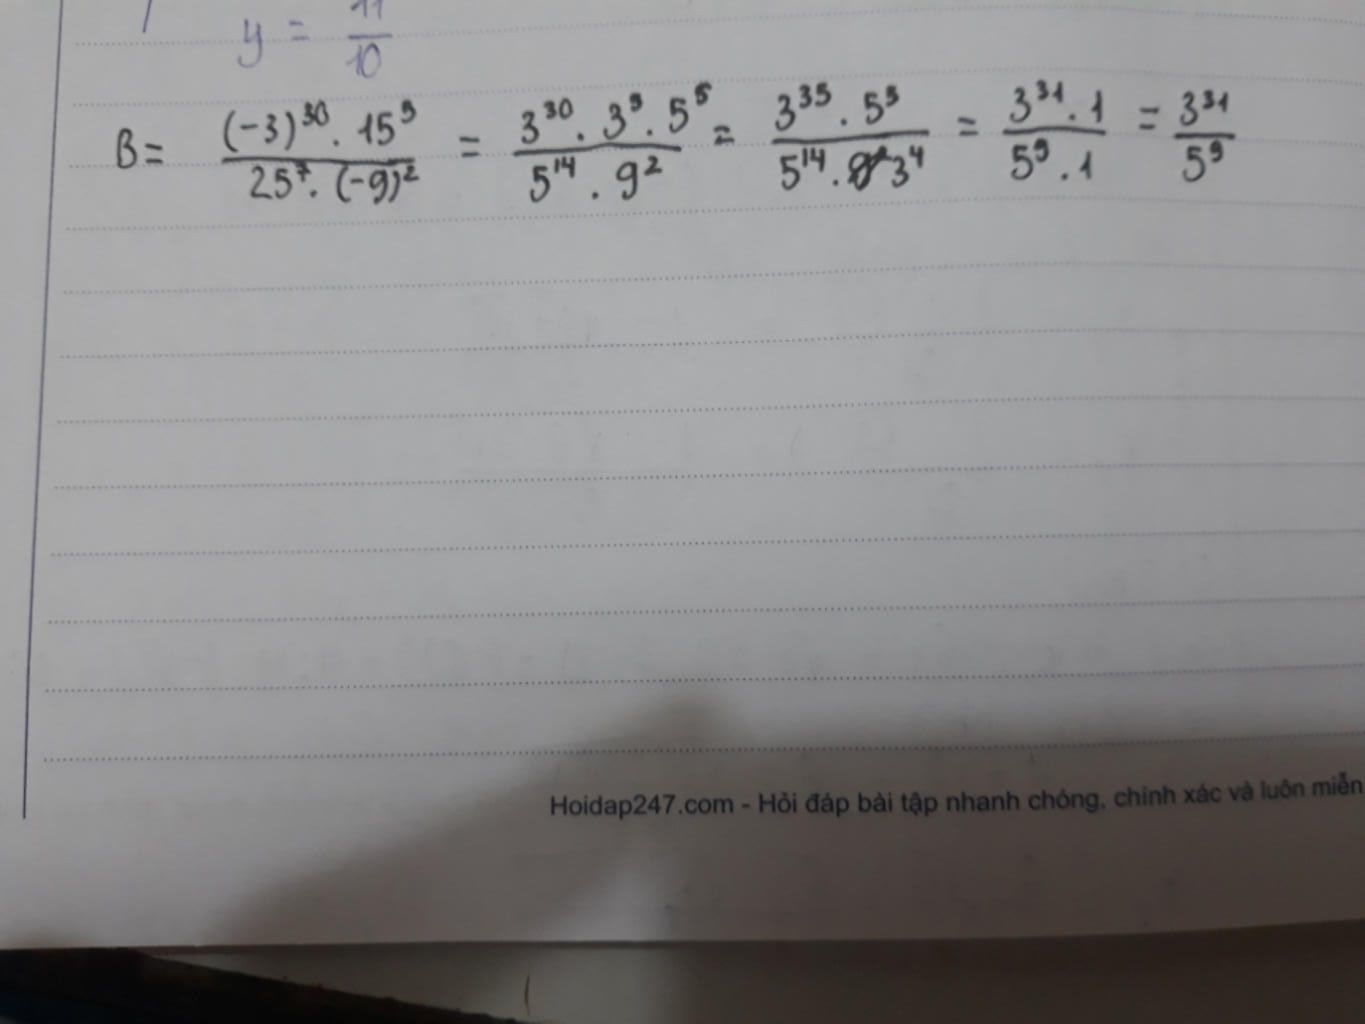 y = 11/10
B = (-3)³⁰ . 15⁵ / 25⁷ . (-9)² = 3³⁰ . 3⁵ . 5⁵ / 5¹⁴ . 9² = 3³⁵ . 5⁵ / 5¹⁴ . 3⁴ = 3³¹ . 1 / 5⁹ . 1 = 3³¹ / 5⁹
Hoidap247.com - Hỏi đáp bài tập nhanh chóng, chính xác và luôn miễn